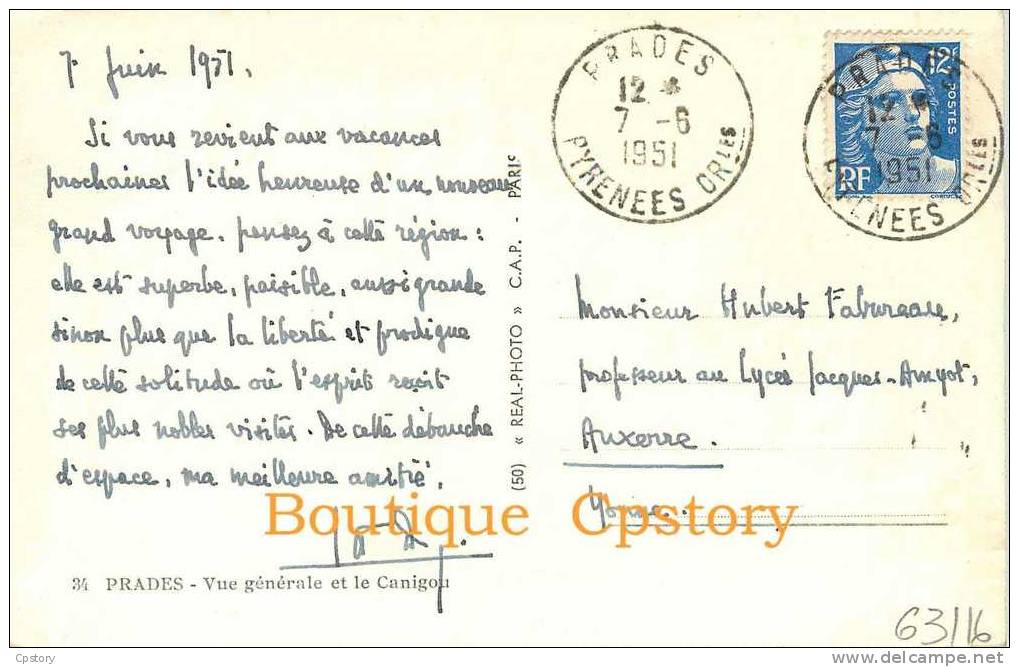 7 Juin 1951.
Si vous revient aux vacances
prochaines l'idée heureuse d'un nouveau
grand voyage, pensez à cette région :
elle est superbe, paisible, aussi grande
sinon plus que la liberté et prodigue
de cette solitude où l'esprit reçoit
ses plus nobles visites. De cette débauche
d'espace, ma meilleure amitié.
34 PRADES - Vue générale et le Canigou
(50) « REAL-PHOTO » C.A.P. - PARIS
PRADES
12 *
7 - 6
1951
PYRENEES ORles
12F
POSTES
RF
PRADES
12 *
7 - 6
1951
PYRENEES ORles
Monsieur Hubert Fabureau,
professeur au Lycée Jacques-Amyot,
Auxerre.
Yonne.
Boutique Cpstory
63/16
Cpstory
www.delcampe.net